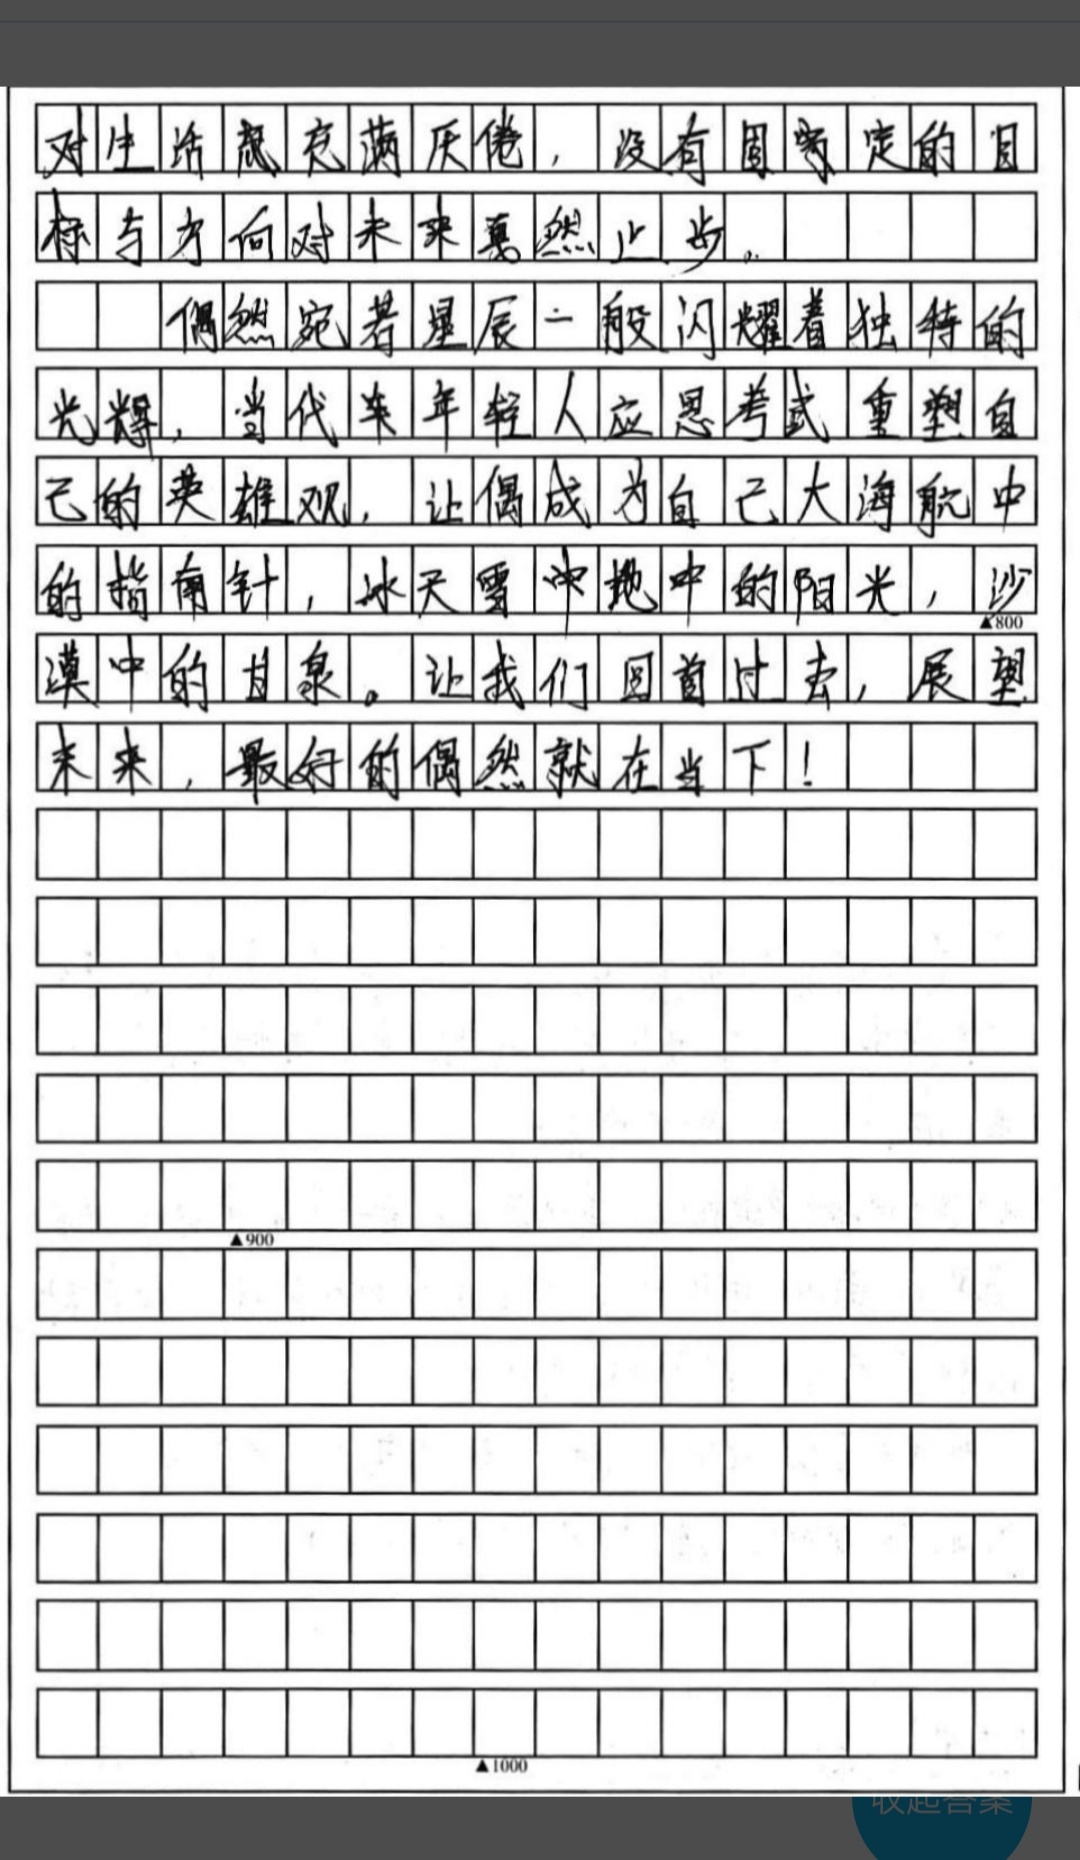 对生活感充满厌倦，没有固定的目
标与方向对未来戛然止步。
偶然宛若星辰一般闪耀着独特的
光辉，当代年轻人应思考重塑自
己的英雄观，让偶成为自己大海航中
的指南针，冰天雪地中的阳光，沙
▲800
漠中的甘泉。让我们回首过去，展望
未来，最好的偶然就在当下！
▲900
▲1000
收起答案